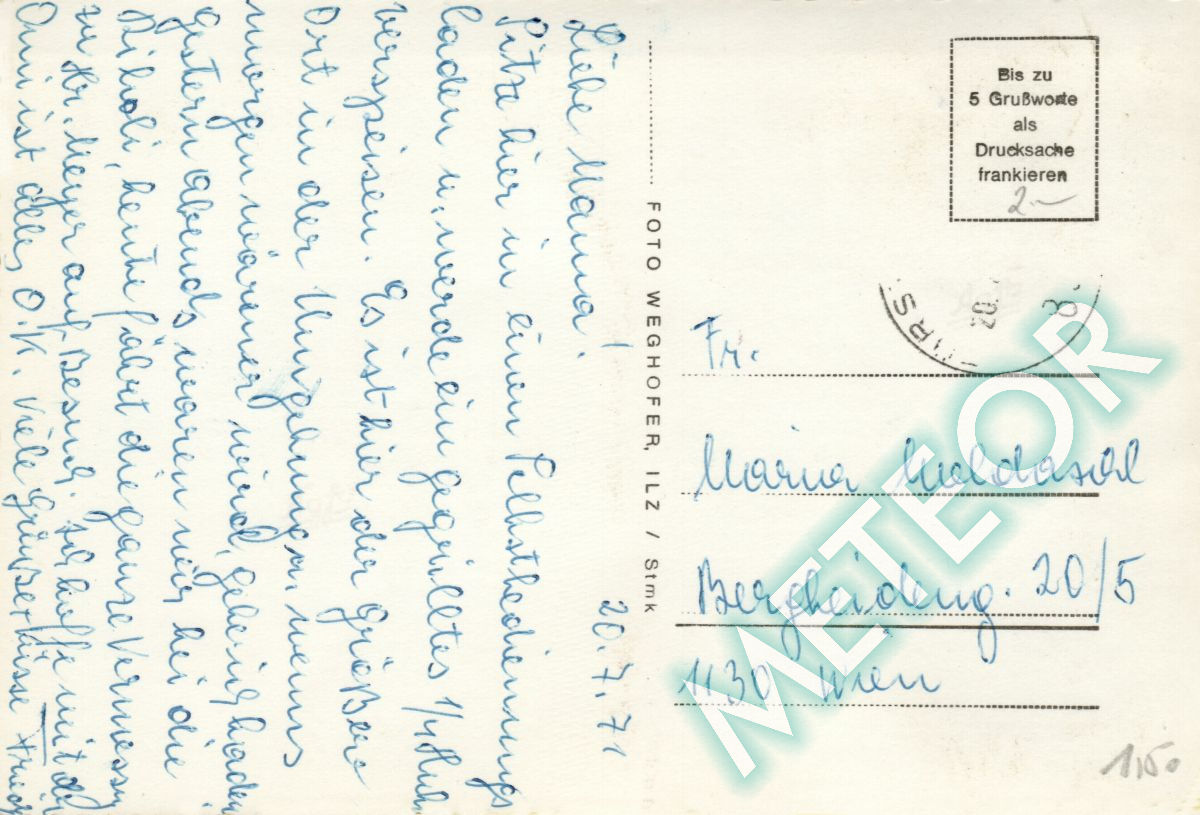 20.7.71
Liebe Mama!
Sitze hier in einem Selbstbedienungs
laden u. werde ein gegrilltes 1/4 Huhn
verspeisen. Es ist hier der größere
Ort in der Umgebung. Wenns
morgen wärmer wird, gehe ich baden
gestern abends waren wir bei die
heute fährt die ganze
zu Hr. Meyer auf Besuch. Ich hoffe mit der
Omi ist alles O.K. Viele Grüße + Küsse
FOTO WEGHOFER, ILZ / Stmk
Bis zu
5 Grußworte
als
Drucksache
frankieren
2.-
20.
8.
Fr.
Maria
Bergheideng. 20/5
1130 Wien
METEOR
1,50